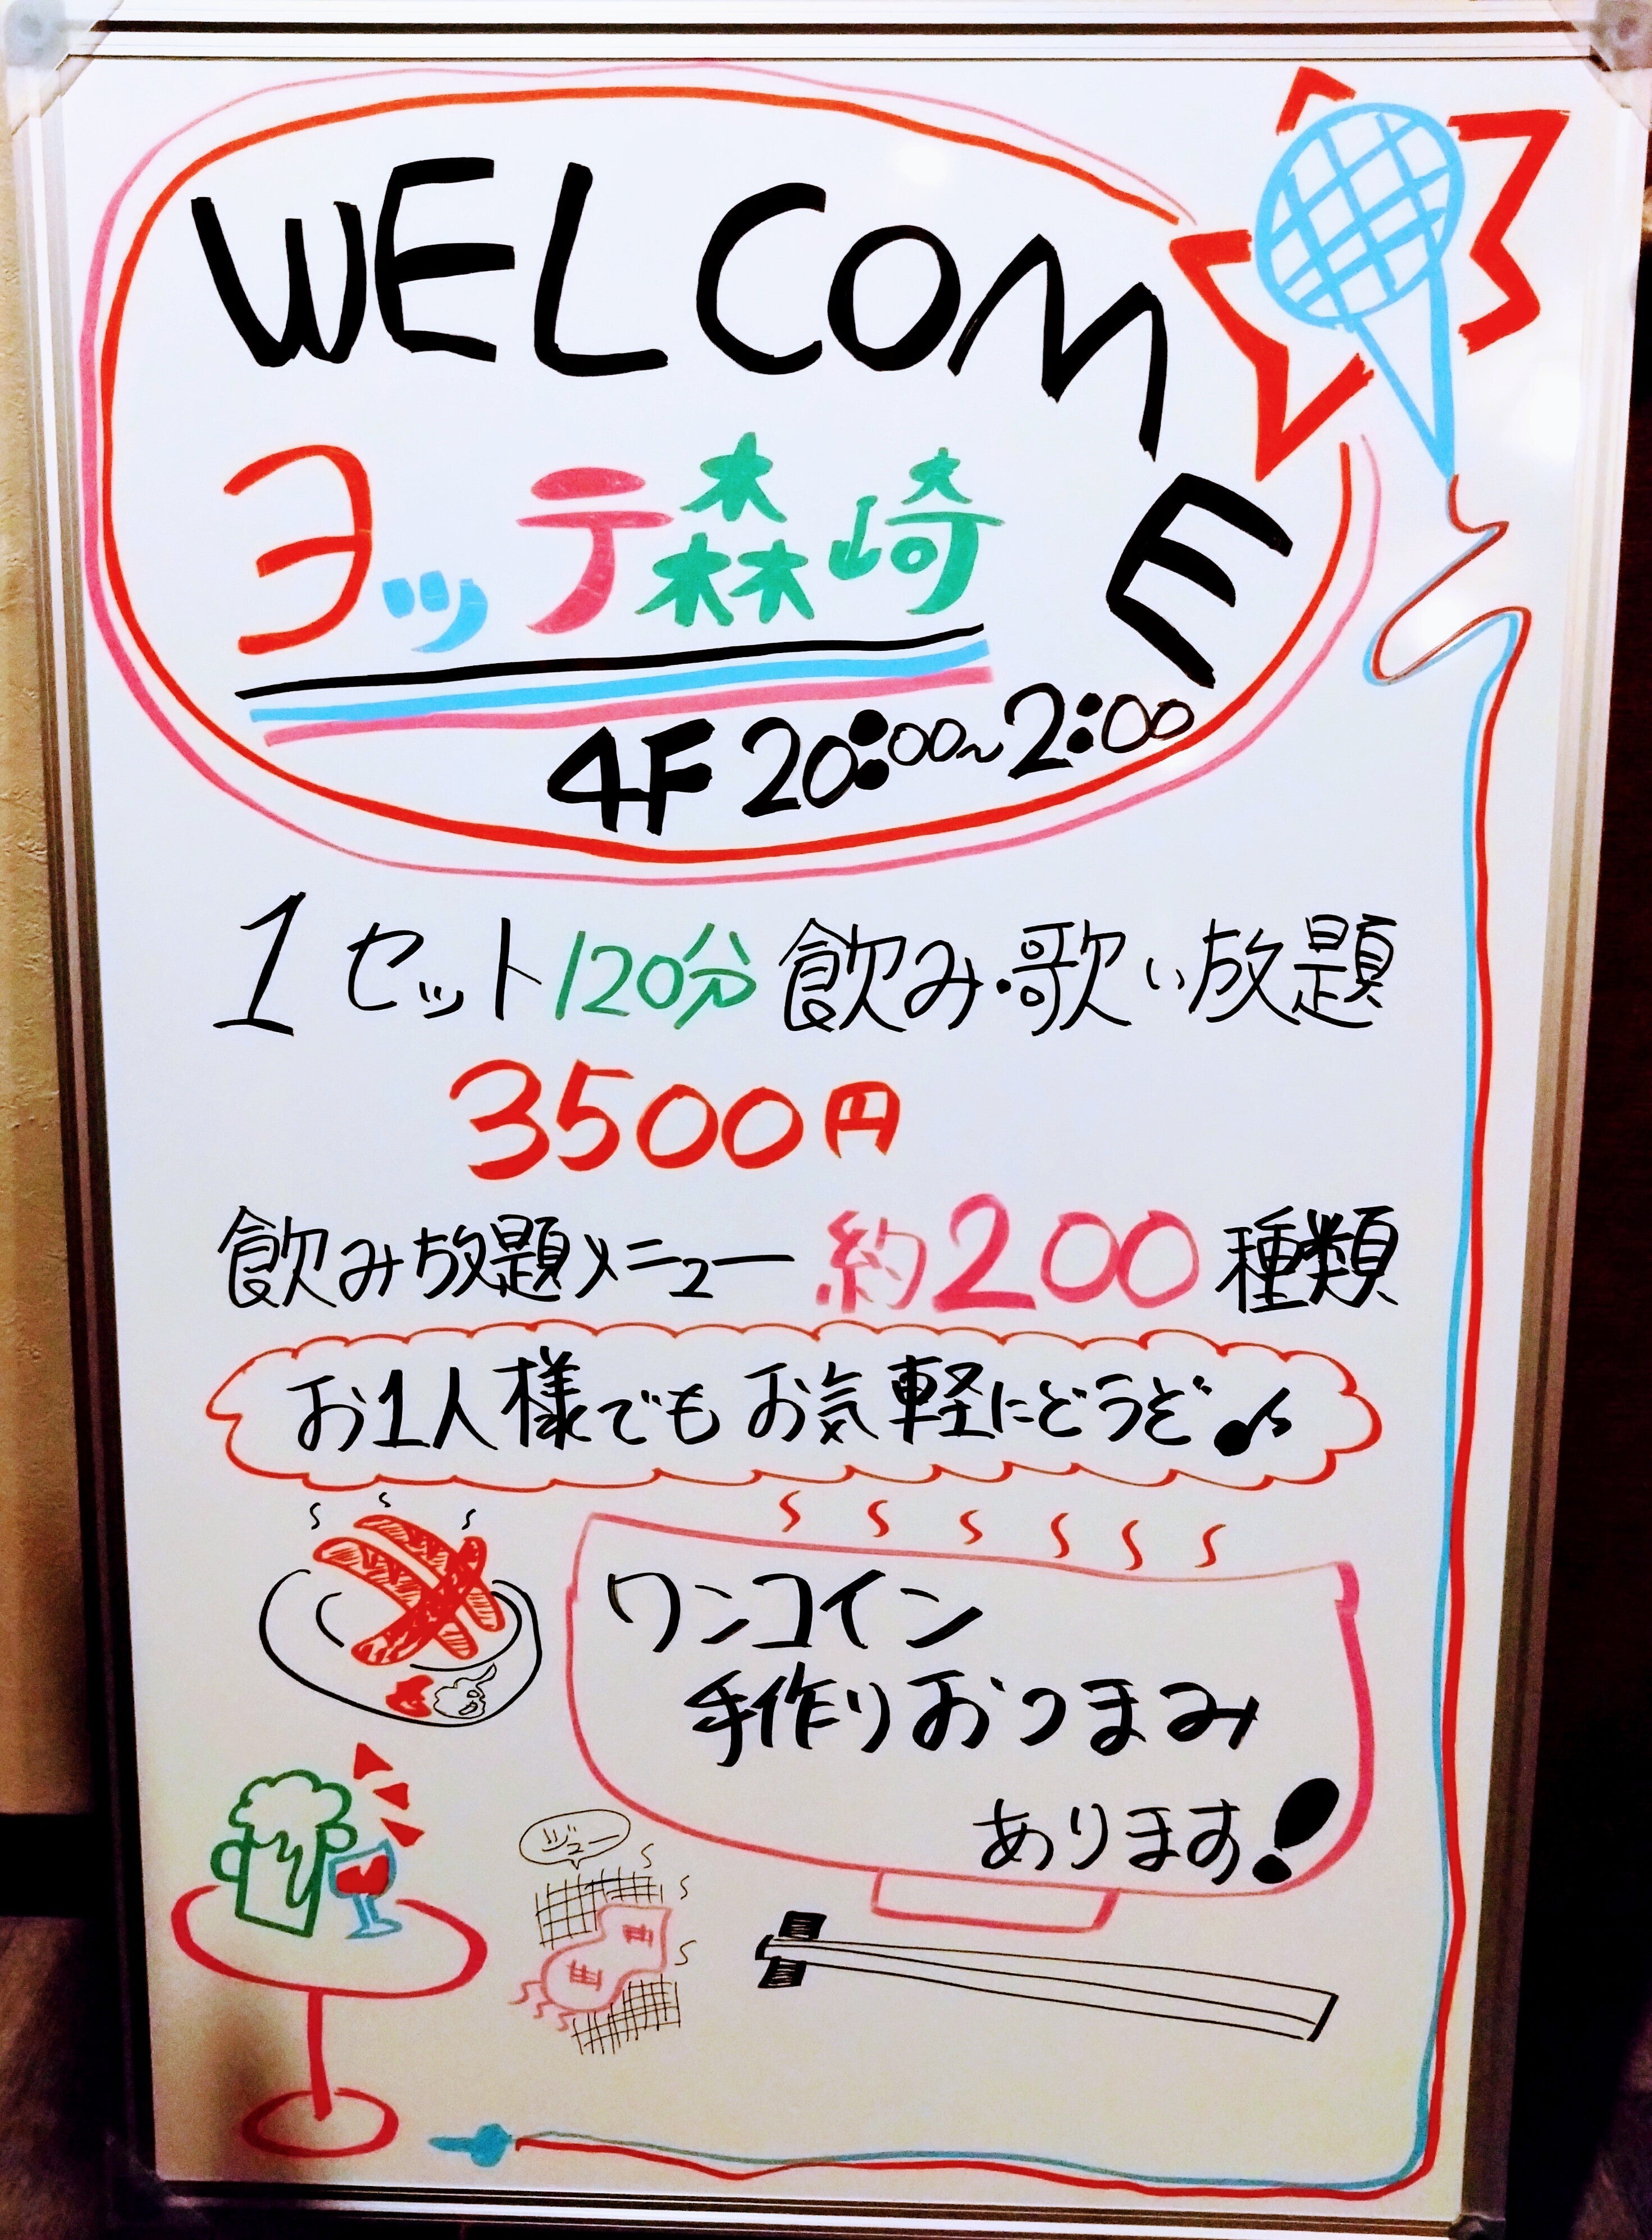 WELCOME
ヨッテ森崎
4F 20:00~2:00
1セット120分飲み・歌い放題
3500円
飲み放題メニュー 約200種類
お1人様でもお気軽にどうぞ♪
ワンコイン
手作りおつまみ
あります!
ジュー